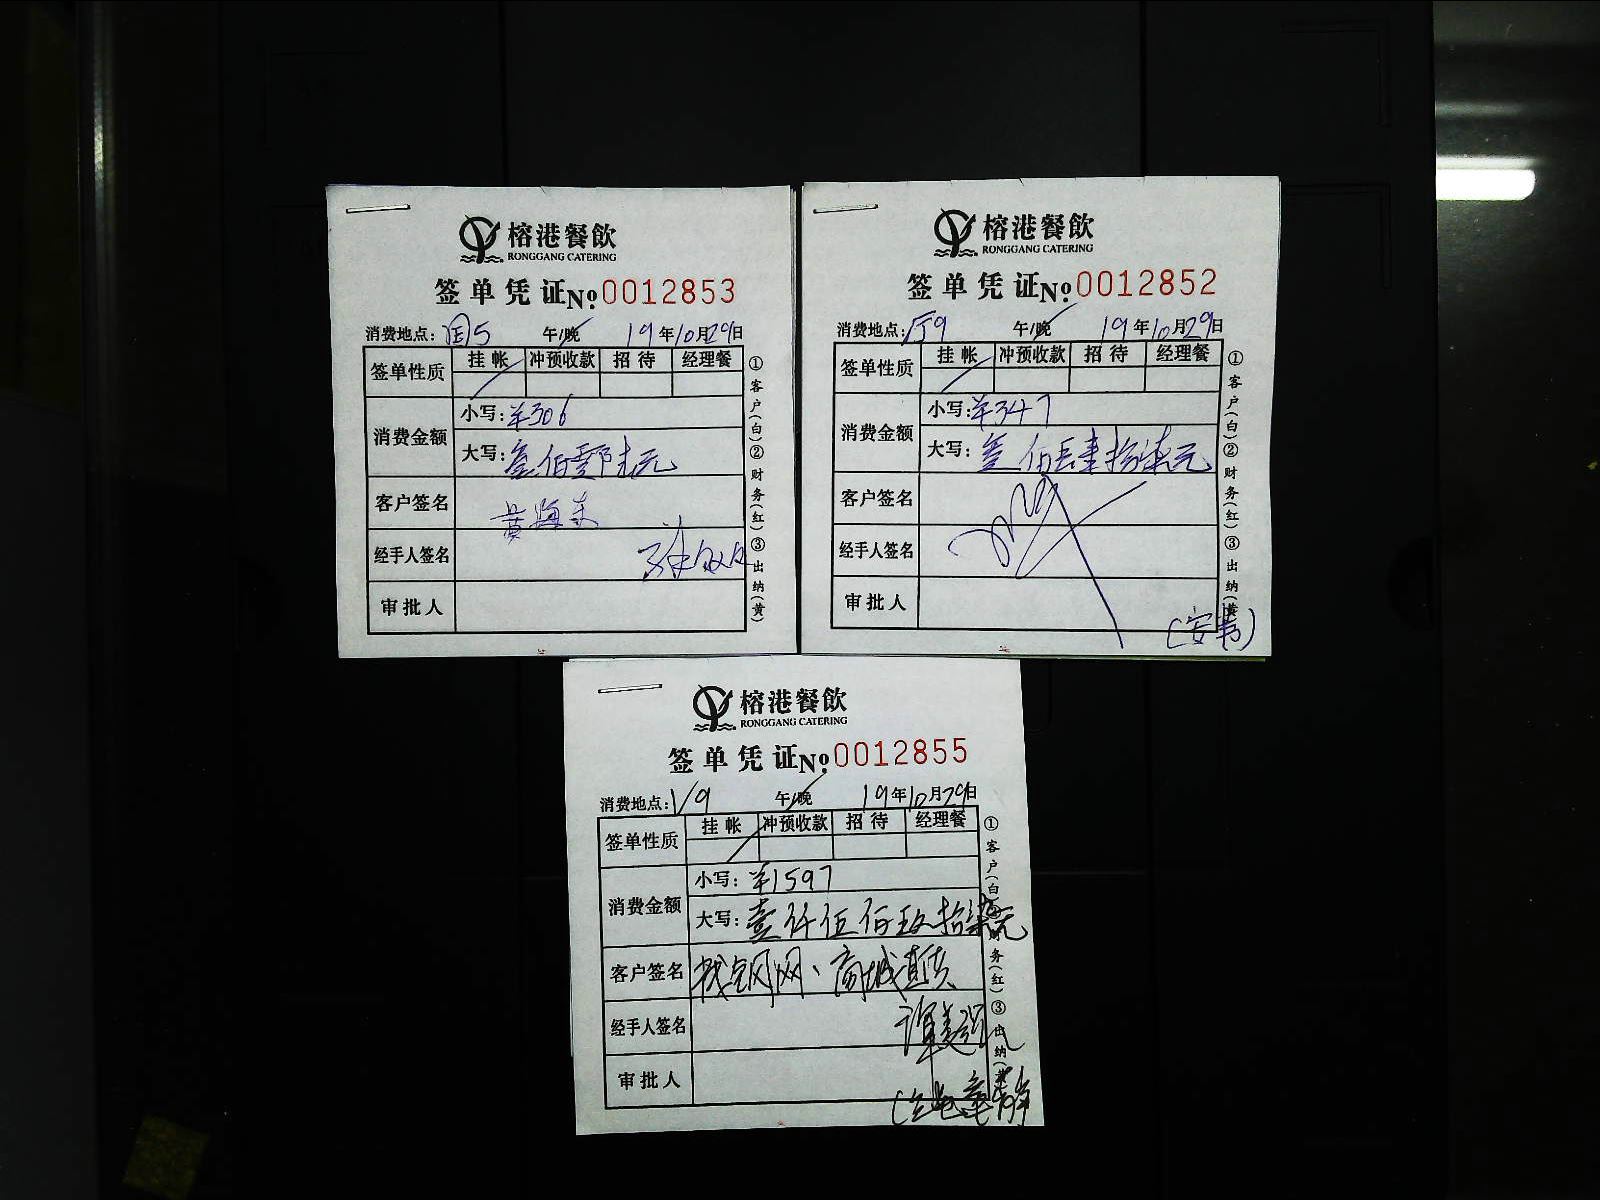 榕港餐飲
RONGGANG CATERING
签单凭证 No. 0012853
消费地点: 5 午/晚 19年10月29日
签单性质 挂帐 冲预收款 招待 经理餐
消费金额
小写: ¥306
大写: 叁佰零陆元
客户签名 黄海东
经手人签名
审批人
①客户(白)②财务(红)③出纳(黄)
榕港餐飲
RONGGANG CATERING
签单凭证 No. 0012852
消费地点: 厅9 午/晚 19年10月29日
签单性质 挂帐 冲预收款 招待 经理餐
消费金额
小写: ¥347
大写: 叁佰肆拾柒元
客户签名
经手人签名
审批人
①客户(白)②财务(红)③出纳(黄)
榕港餐飲
RONGGANG CATERING
签单凭证 No. 0012855
消费地点: V9 午/晚 19年10月29日
签单性质 挂帐 冲预收款 招待 经理餐
消费金额
小写: ¥1597
大写: 壹仟伍佰玖拾柒元
客户签名 找钢网、商城
经手人签名
审批人
①客户(白)②财务(红)③出纳(黄)